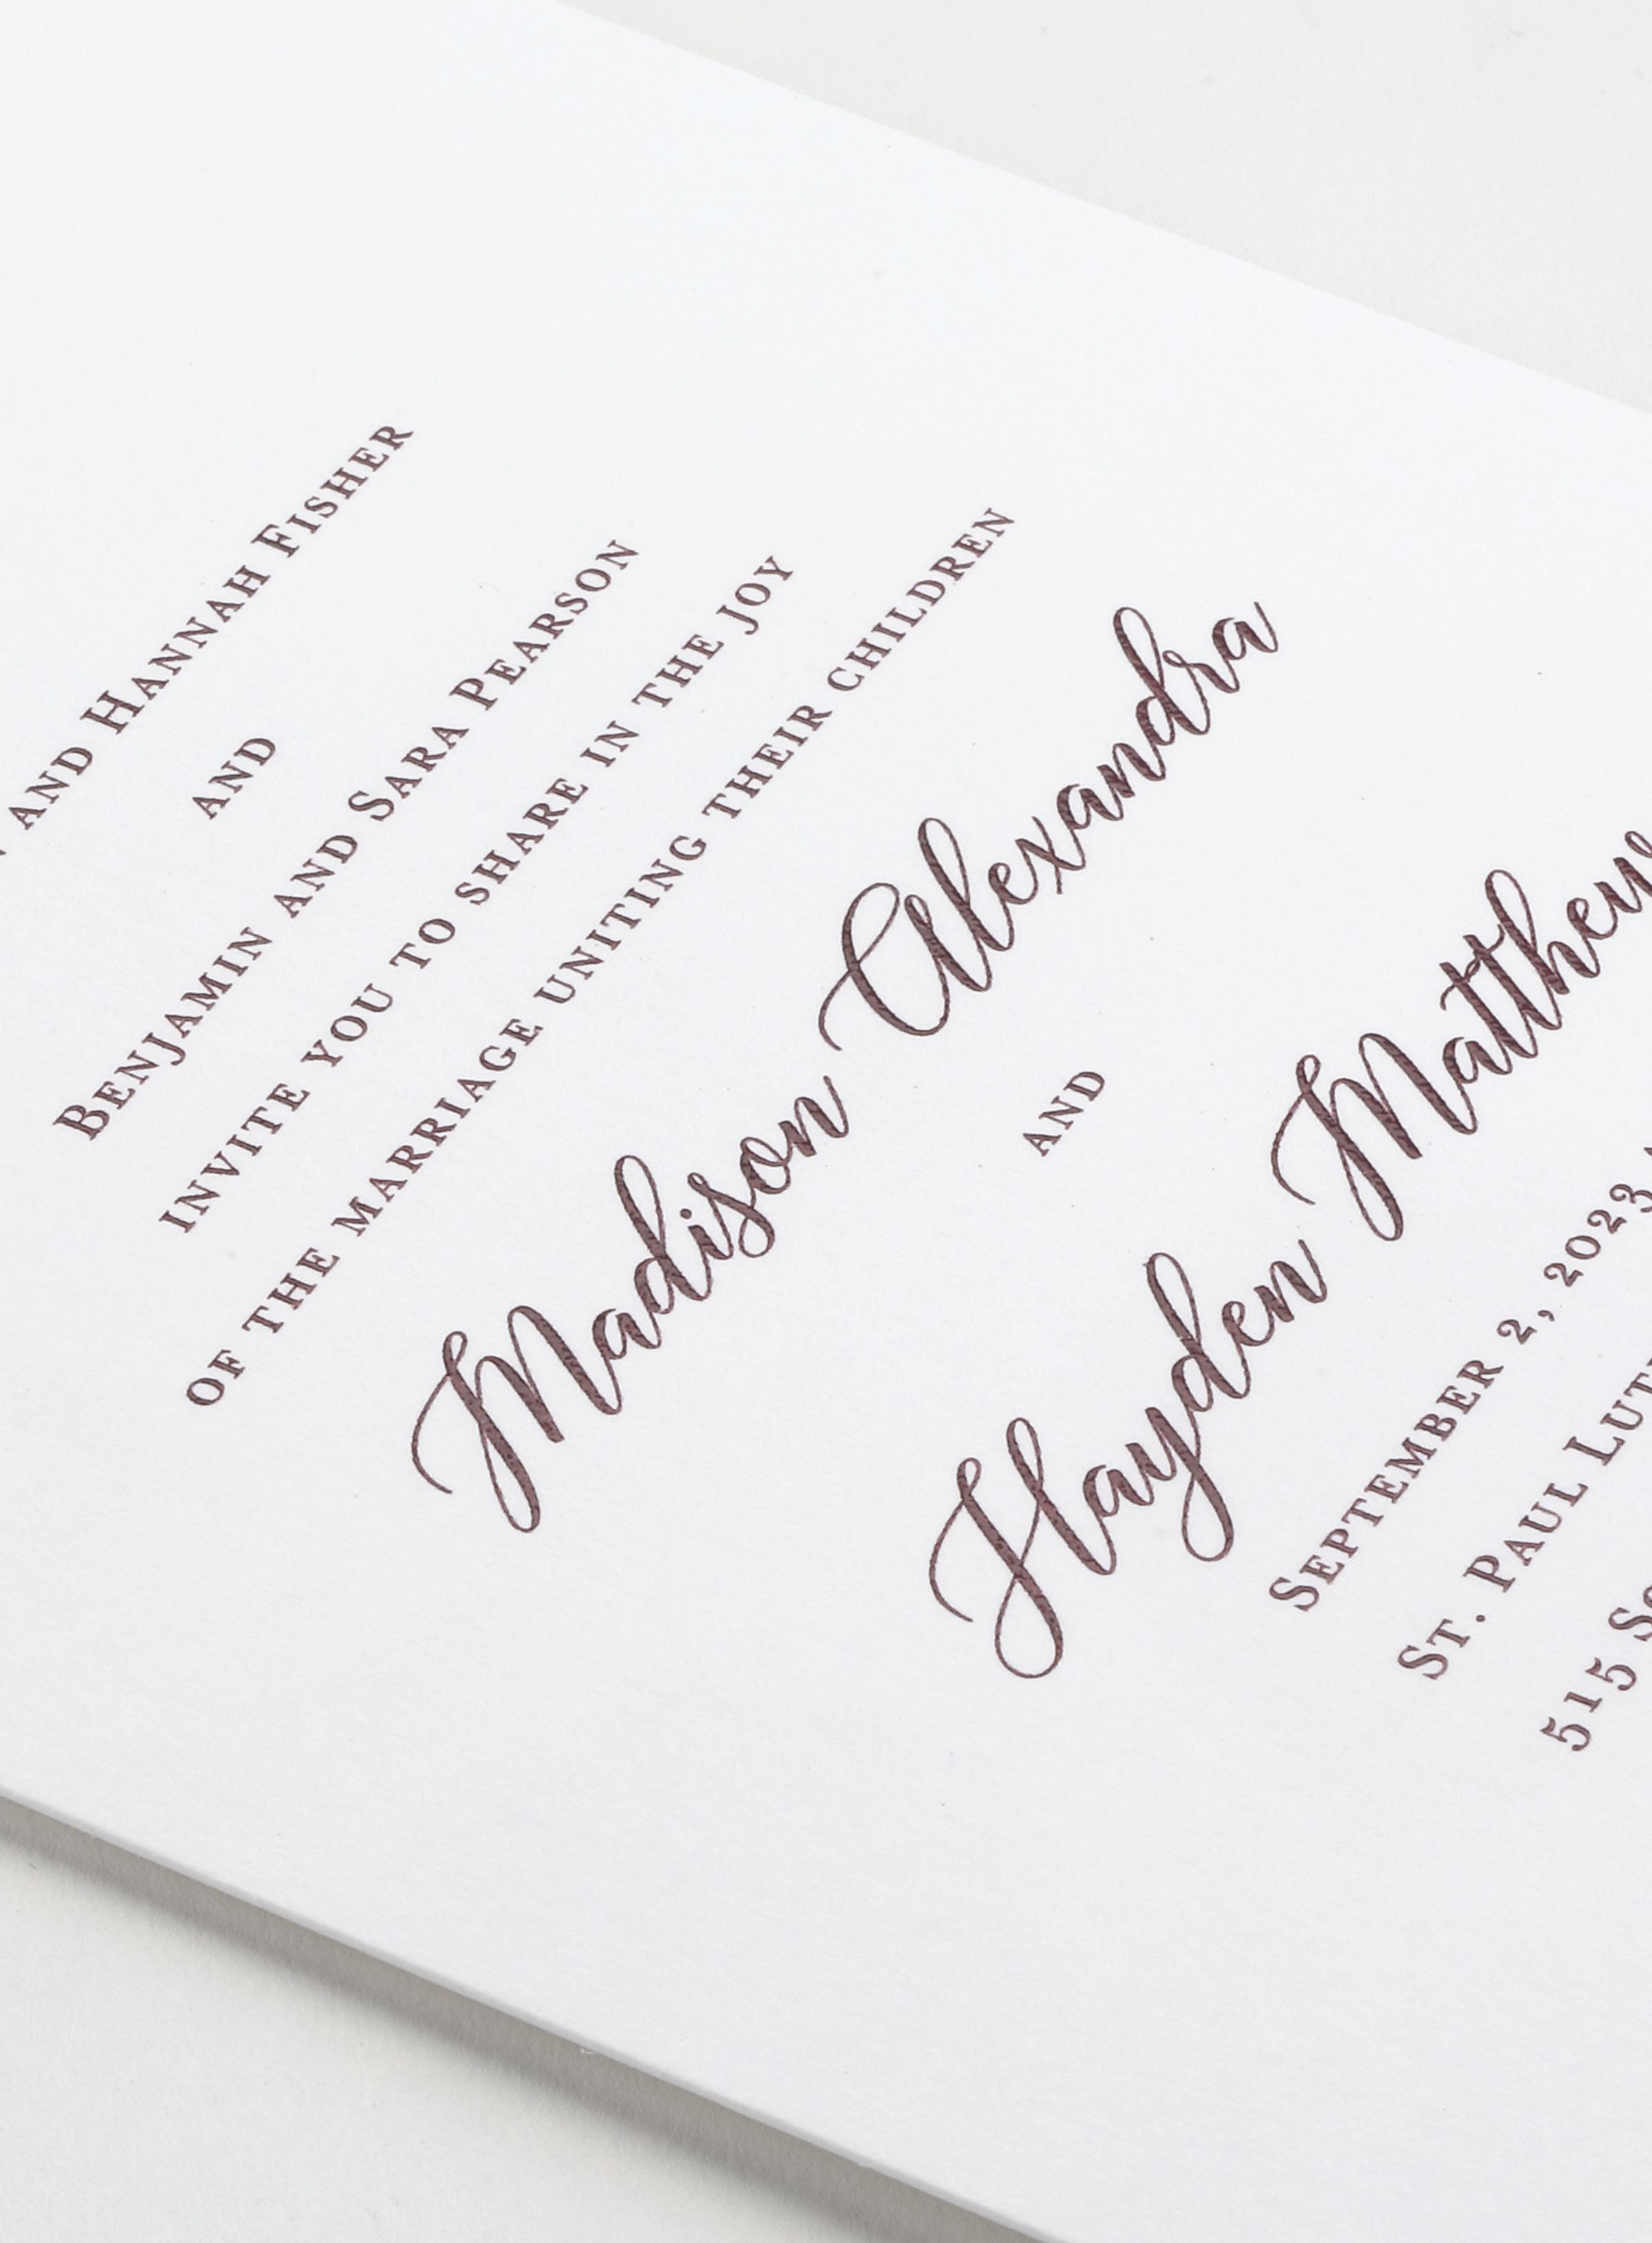 and Hannah Fisher
and
Benjamin and Sara Pearson
invite you to share in the joy
of the marriage uniting their children
Madison Alexandra
and
Hayden Matthew
September 2, 2023
St. Paul
515